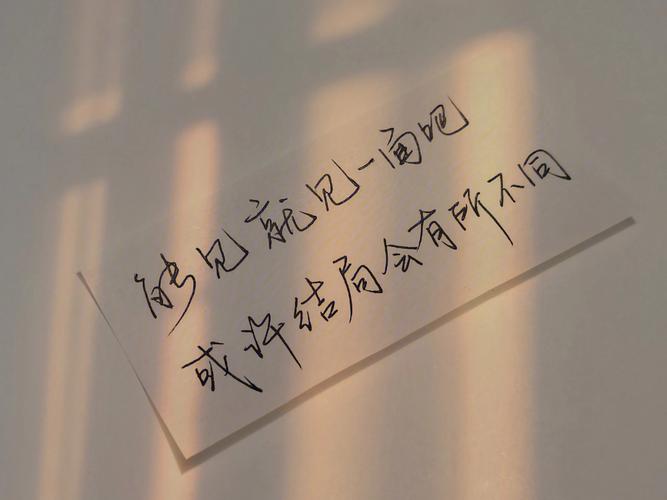 能见就见一面吧
或许结局会有所不同